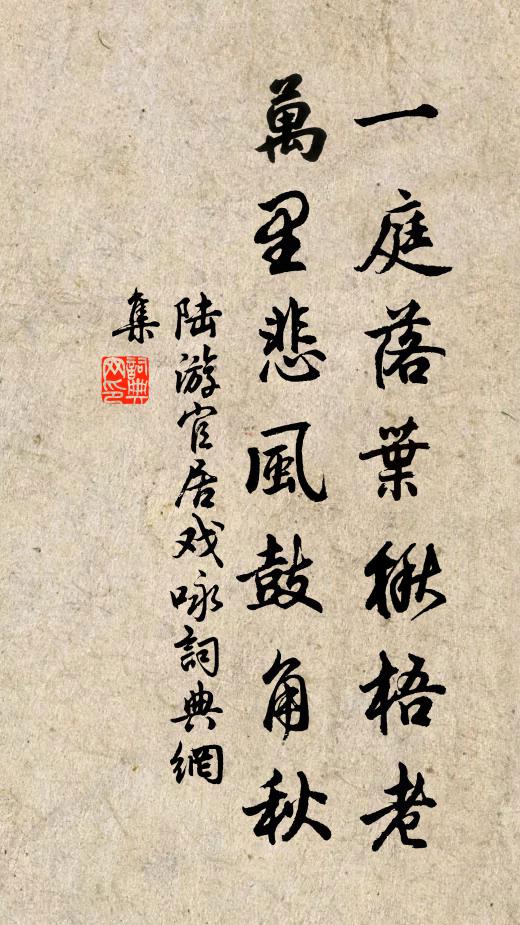 一庭落葉楸梧老
萬里悲風鼓角秋
陆游官居戏咏詞典網
集
詞典
网印